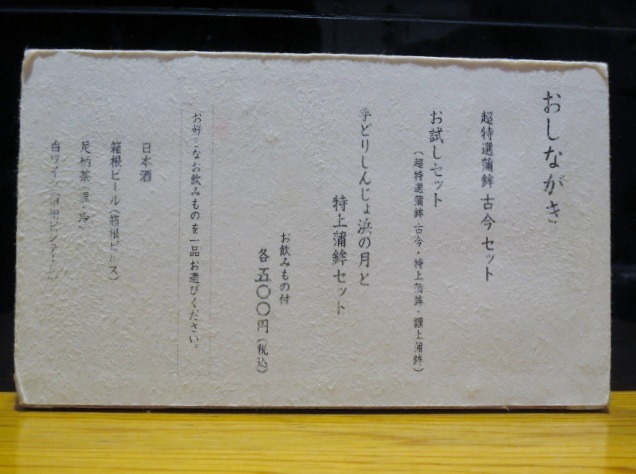 おしながき
超特選蒲鉾 古今 セット
お試しセット
(超特選蒲鉾 古今・特上蒲鉾・謹上蒲鉾)
手どりしんじょ浜の月と
特上蒲鉾セット
お飲みもの付
各五〇〇円(税込)
お好きなお飲みものを一品お選びください。
日本酒
箱根ビール(箱根ピルス)
足柄茶(温・冷)
白ワイン